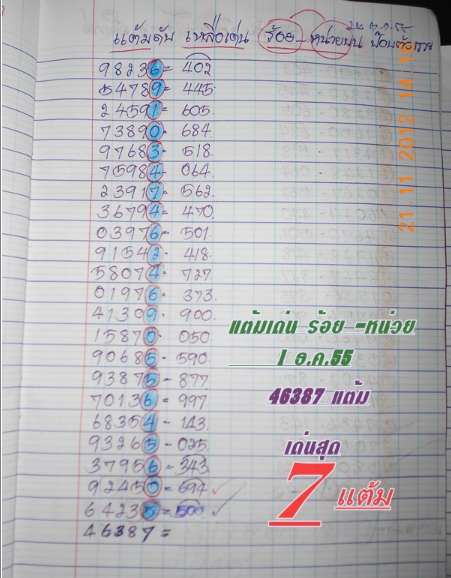 แต้มดัน เหลือเด่น ร้อย - หน่วยบน
98236 = 402
54789 = 445
24591 = 605.
73890 = 684
97683 - 518.
75984 - 064.
23917 - 562
36794 - 470.
03976 - 501.
91542 - 418.
58074 - 727
01976 - 373.
41309 - 900.
15870 - 050
90685 - 590.
93875 - 877
70136 - 997
68354 - 143.
93265 - 025
37956 - 343
92450 - 694 ✓
64238 = 500 ✓
46387 =
21.11.2012 14:1
แต้มเด่น ร้อย -หน่วย
1 ธ.ค.55
46387 แต้ม
เด่นสุด
7 แต้ม